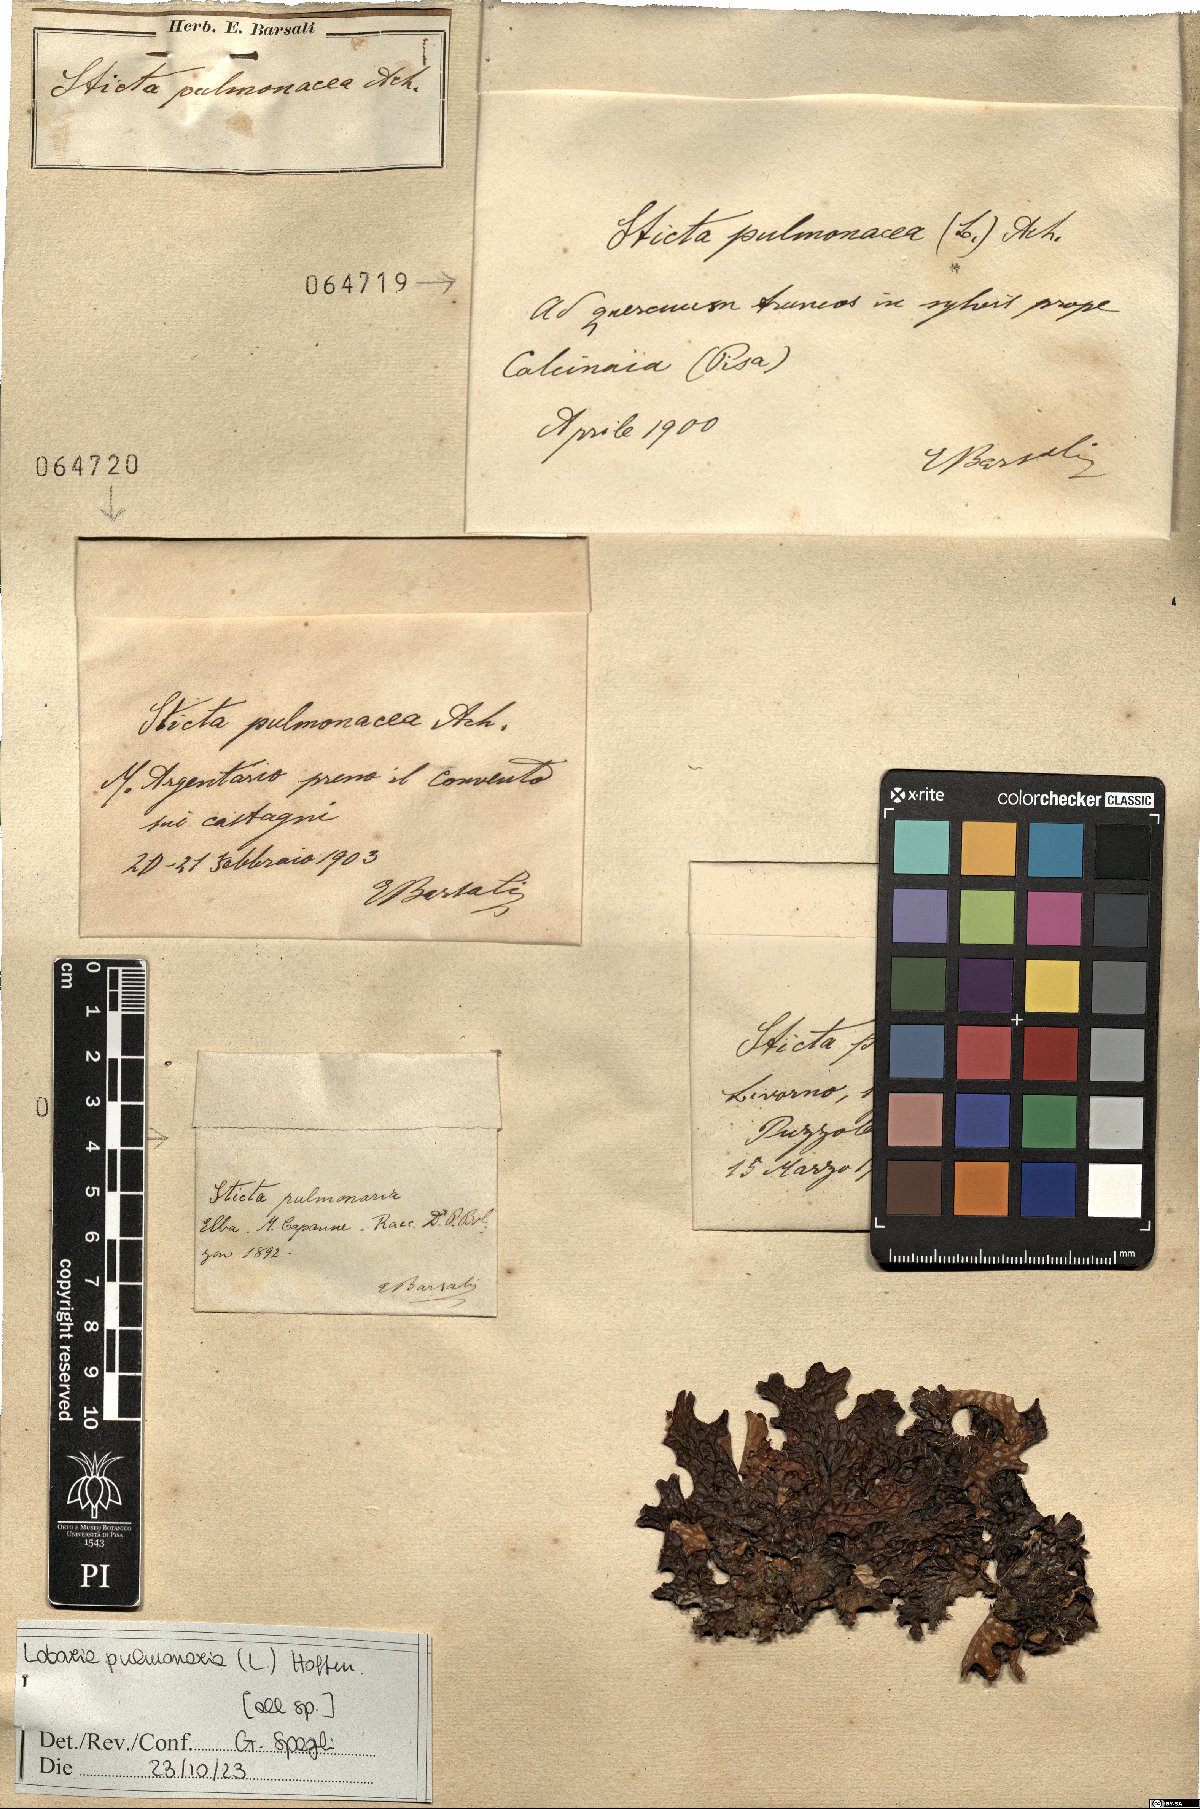 Herb. E. Barsali
Sticta pulmonacea Ach.
Sticta pulmonacea (L.) Ach.
Ad quercuum truncos in sylvis prope
Calcinaia (Pisa)
Aprile 1900
EBarsali
064719
064720
Sticta pulmonacea Ach.
M. Argentario presso il convento
sui castagni
20-21 Febbraio 1903
EBarsali
x·rite
colorchecker CLASSIC
mm
Sticta p
Livorno,
Puzzole
15 Marzo 1
cm
0 1 2 3 4 5 6 7 8 9 10
copyright reserved
ORTO E MUSEO BOTANICO
UNIVERSITÀ DI PISA
1543
PI
0
Sticta pulmonaria
Elba. M. Capanne. Racc. Dr. P. Bol-
zon 1892.
EBarsali
Lobaria pulmonaria (L.) Hoffm.
[all sp.]
Det./Rev./Conf. G. Spagli
Die 23/10/23
BY-SA